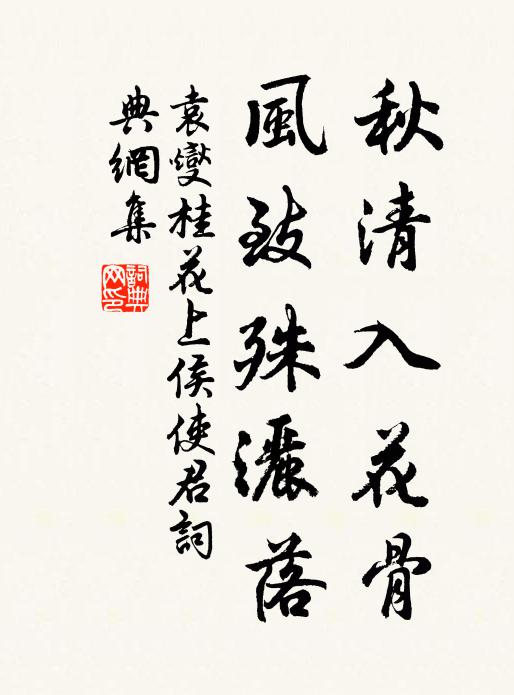 秋清入花骨
風致殊灑落
袁燮桂花上侯使君詞
典網集
詞典網印